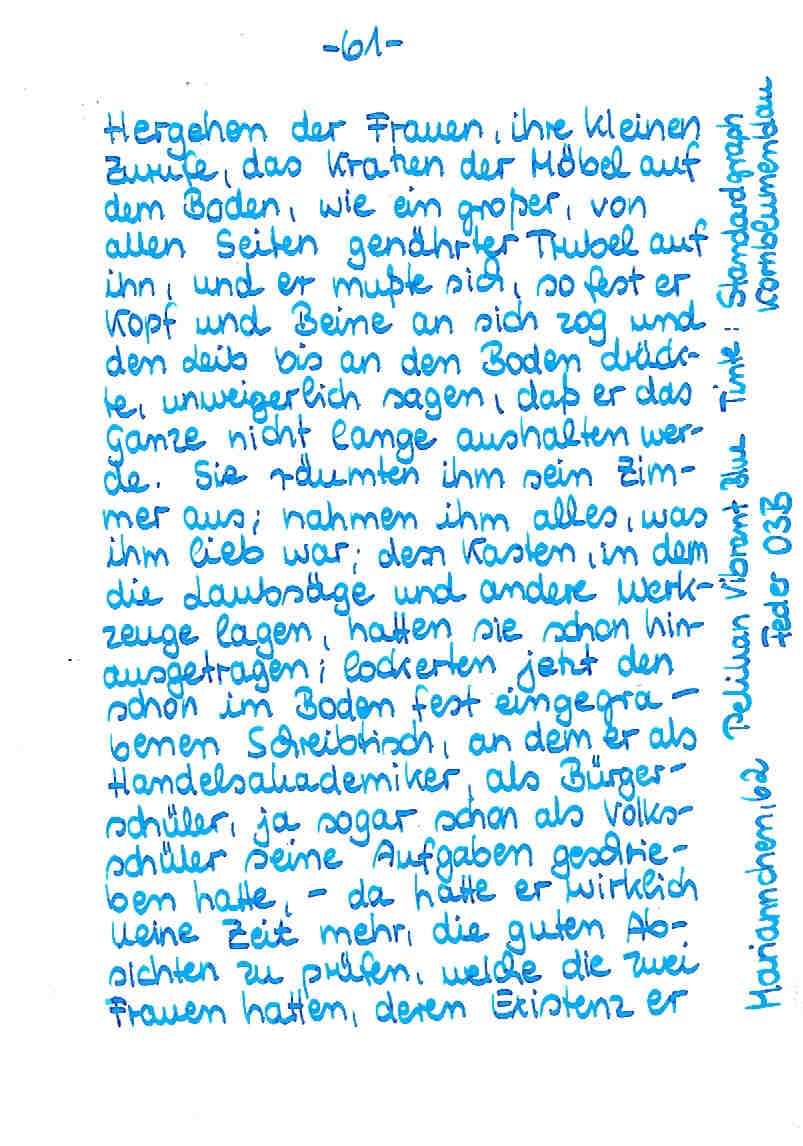 -61-
Hergehen der Frauen, ihre kleinen
Zurufe, das Kratzen der Möbel auf
dem Boden, wie ein großer, von
allen Seiten genährter Trubel auf
ihn, und er mußte sich, so fest er
Kopf und Beine an sich zog und
den Leib bis an den Boden drück-
te, unweigerlich sagen, daß er das
Ganze nicht lange aushalten wer-
de. Sie räumten ihm sein Zim-
mer aus; nahmen ihm alles, was
ihm lieb war; den Kasten, in dem
die Laubsäge und andere Werk-
zeuge lagen, hatten sie schon hin-
ausgetragen; lockerten jetzt den
schon im Boden fest eingegra-
benen Schreibtisch, an dem er als
Handelsakademiker, als Bürger-
schüler, ja sogar schon als Volks-
schüler seine Aufgaben geschrie-
ben hatte, - da hatte er wirklich
keine Zeit mehr, die guten Ab-
sichten zu prüfen, welche die zwei
Frauen hatten, deren Existenz er
Mariannchen,62 Pelikan Vibrant Blue Tinte: Standardgraph
Feder 03B Kornblumenblau